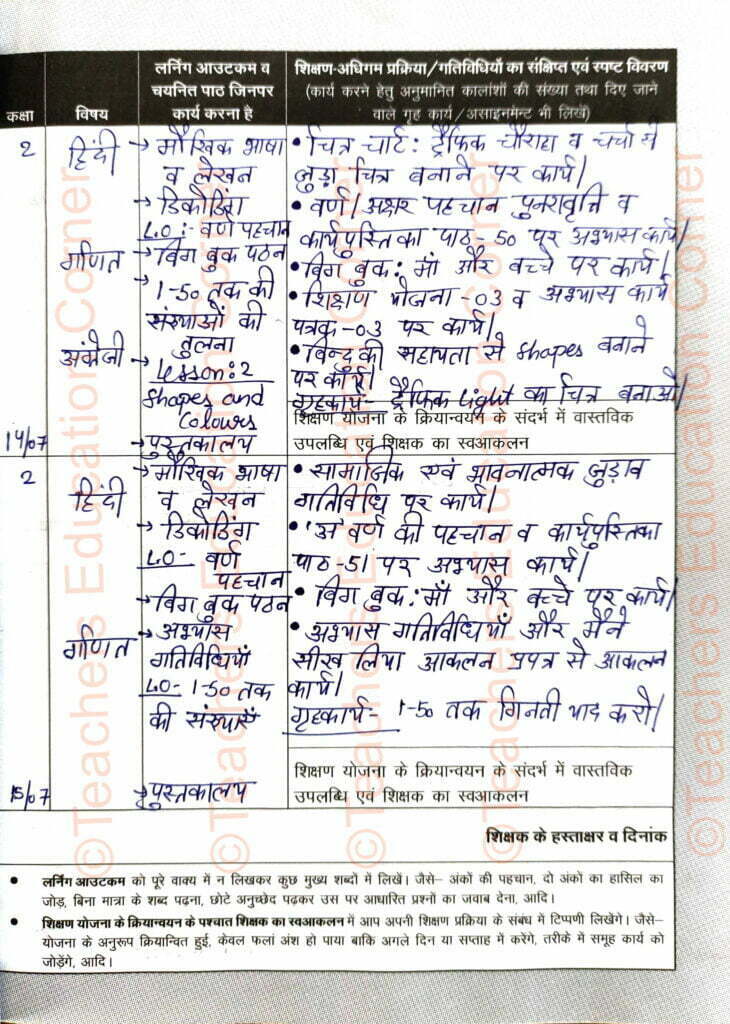 कक्षा
विषय
लर्निंग आउटकम व
चयनित पाठ जिनपर
कार्य करना है
शिक्षण-अधिगम प्रक्रिया/गतिविधियों का संक्षिप्त एवं स्पष्ट विवरण
(कार्य करने हेतु अनुमानित कालांशों की संख्या तथा दिए जाने
वाले गृह कार्य/असाइनमेन्ट भी लिखें)
2
हिंदी
गणित
अंग्रेजी
14/07
→ मौखिक भाषा
व लेखन
→ डिकोडिंग
L.O:- वर्ण पहचान
→ बिग बुक पठन
→ 1-50 तक की
संख्याओं की
तुलना
→ Lesson:2
Shapes and
Colours
→ पुस्तकालय
• चित्र चार्ट: ट्रैफिक चौराहा व चर्चा से
जुड़ा चित्र बनाने पर कार्य।
• वर्ण/अक्षर पहचान पुनरावृत्ति व
कार्यपुस्तिका पाठ-50 पर अभ्यास कार्य।
• बिग बुक: माँ और बच्चे पर कार्य।
• शिक्षण योजना-03 व अभ्यास कार्य
पत्रक-03 पर कार्य।
• बिन्दु की सहायता से shapes बनाने
पर कार्य।
गृहकार्य- ट्रैफिक light का चित्र बनाओ।
शिक्षण योजना के क्रियान्वयन के संदर्भ में वास्तविक
उपलब्धि एवं शिक्षक का स्वआकलन
2
हिंदी
गणित
15/07
→ मौखिक भाषा
व लेखन
→ डिकोडिंग
L.O- वर्ण
पहचान
→ बिग बुक पठन
→ अभ्यास
गतिविधियाँ
L.O- 1-50 तक
की संख्याएँ
→ पुस्तकालय
• सामाजिक एवं भावनात्मक जुड़ाव
गतिविधि पर कार्य।
• 'अ' वर्ण की पहचान व कार्यपुस्तिका
पाठ-51 पर अभ्यास कार्य।
• बिग बुक: माँ और बच्चे पर कार्य।
• अभ्यास गतिविधियाँ और मैंने
सीख लिया आकलन प्रपत्र से आकलन
कार्य।
गृहकार्य- 1-50 तक गिनती याद करो।
शिक्षण योजना के क्रियान्वयन के संदर्भ में वास्तविक
उपलब्धि एवं शिक्षक का स्वआकलन
शिक्षक के हस्ताक्षर व दिनांक
• लर्निंग आउटकम को पूरे वाक्य में न लिखकर कुछ मुख्य शब्दों में लिखें। जैसे– अंकों की पहचान, दो अंकों का हासिल का
जोड़, बिना मात्रा के शब्द पढ़ना, छोटे अनुच्छेद पढ़कर उस पर आधारित प्रश्नों का जवाब देना, आदि।
• शिक्षण योजना के क्रियान्वयन के पश्चात शिक्षक का स्वआकलन में आप अपनी शिक्षण प्रक्रिया के संबंध में टिप्पणी लिखेंगे। जैसे–
योजना के अनुरूप क्रियान्वित हुई, केवल फलां अंश हो पाया बाकि अगले दिन या सप्ताह में करेंगे, तरीके में समूह कार्य को
जोड़ेंगे, आदि।
©Teachers Education Corner
©Teachers Education Corner
©Teachers Education Corner
©Teachers Education Corner
©Teachers Education Corner